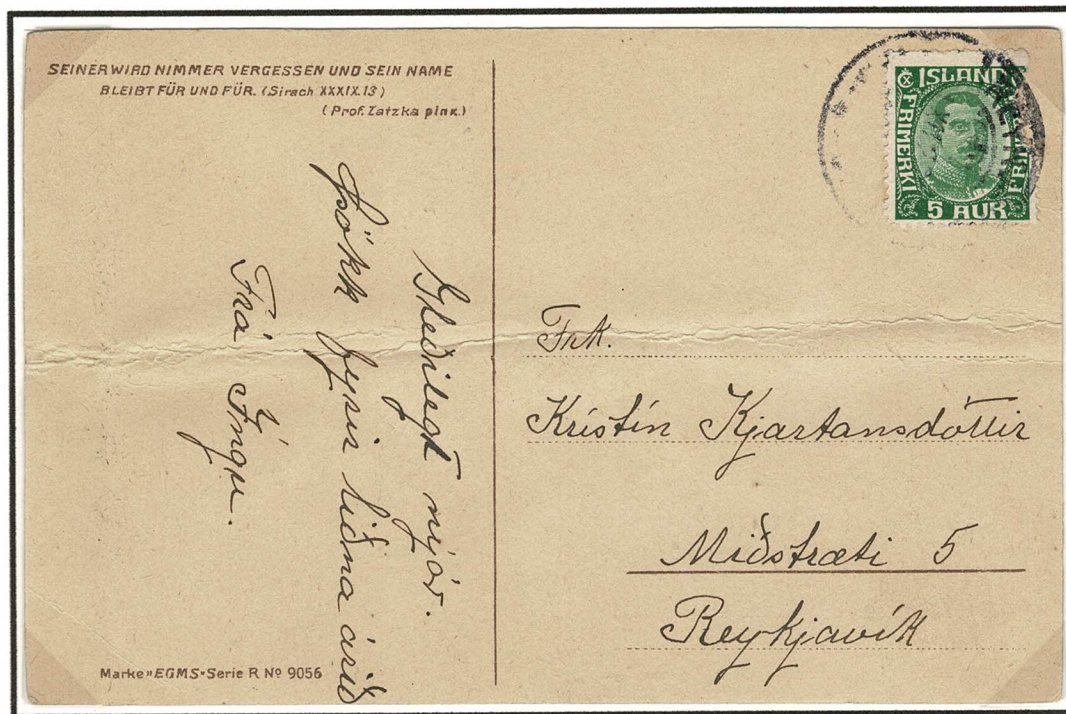 SEINER WIRD NIMMER VERGESSEN UND SEIN NAME
BLEIBT FÜR UND FÜR. (Sirach XXXIX.13)
(Prof. Zatzka pinx.)
Gleðilegt nýár.
Þökk fyrir liðna árið
Frá Ingu.
Marke »EGMS« Serie R No 9056
ISLAND
FRIMERKI
5 AUR
Frk.
Kristín Kjartansdóttir
Miðstræti 5
Reykjavík